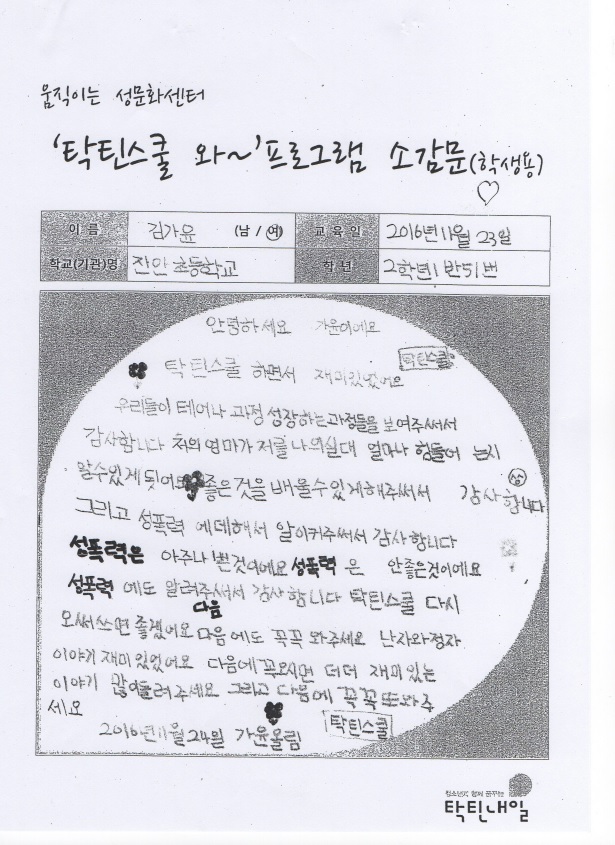 움직이는 성문화센터
'탁틴스쿨 와~' 프로그램 소감문(학생용)
이 름 김가윤 (남 / 여) 교 육 일 2016년 11월 23일
학교(기관)명 진안초등학교 학 년 2학년 1반 51번
안령하세요 가윤이에요
탁틴스쿨 하면서 재미있었어요 탁틴스쿨
우리들이 테어나 과정 성장하는과정들을 보여주써서
감사합니다 처의 엄마가 저를 나의실대 얼마나 힘들어 는지
알수있게 됫어요 좋은것을 배울수있게해주써서 감사합니다
그리고 성폭력 에데해서 알이켜주써서 감사합니다
성폭력은 아주나쁜것이에요 성폭력 은 안좋은것이에요
성폭력 에도 알려주써서 감사합니다 탁틴스쿨 다시
다음
오써쓰면 좋겠어요 다음에도 꼭꼭 와주세요 난자와정자
이야기 재미있었어요 다음에 꼭오시면 더더 재미있는
이야기 많이들려주세요 그리고 다음에 꼭꼭 또와주
세요
2016년 11월 24일 가윤올림 탁틴스쿨
청소년과 함께 꿈꾸는
탁틴내일